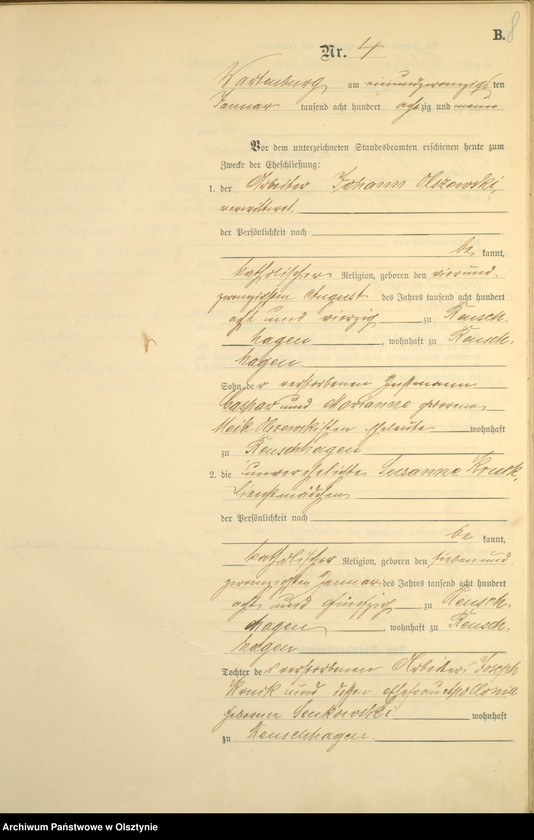 B. 8
Nr. 4
Wartenburg am einundzwanzigsten
Januar tausend acht hundert achtzig und neun
Vor dem unterzeichneten Standesbeamten erschienen heute zum
Zwecke der Eheschließung:
1. der Arbeiter Johann Olszewski,
verwittwet
der Persönlichkeit nach
be kannt,
katholischer Religion, geboren den vierund-
zwanzigsten August des Jahres tausend acht hundert
acht und vierzig zu Reusch-
hagen, wohnhaft zu Reusch-
hagen
Sohn der verstorbenen Instmann
Caspar und Marianne geborene
Olszewskischen Eheleute wohnhaft
zu Reuschhagen
2. die unverehelichte Susanne
Dienstmädchen
der Persönlichkeit nach
be kannt,
katholischer Religion, geboren den siebenund-
zwanzigsten Januar des Jahres tausend acht hundert
acht und fünfzig zu Reusch-
hagen, wohnhaft zu Reusch-
hagen
Tochter des verstorbenen Arbeiter Joseph
und dessen Ehefrau Apollonia
geborene Senkowski wohnhaft
zu Reuschhagen
Archiwum Państwowe w Olsztynie